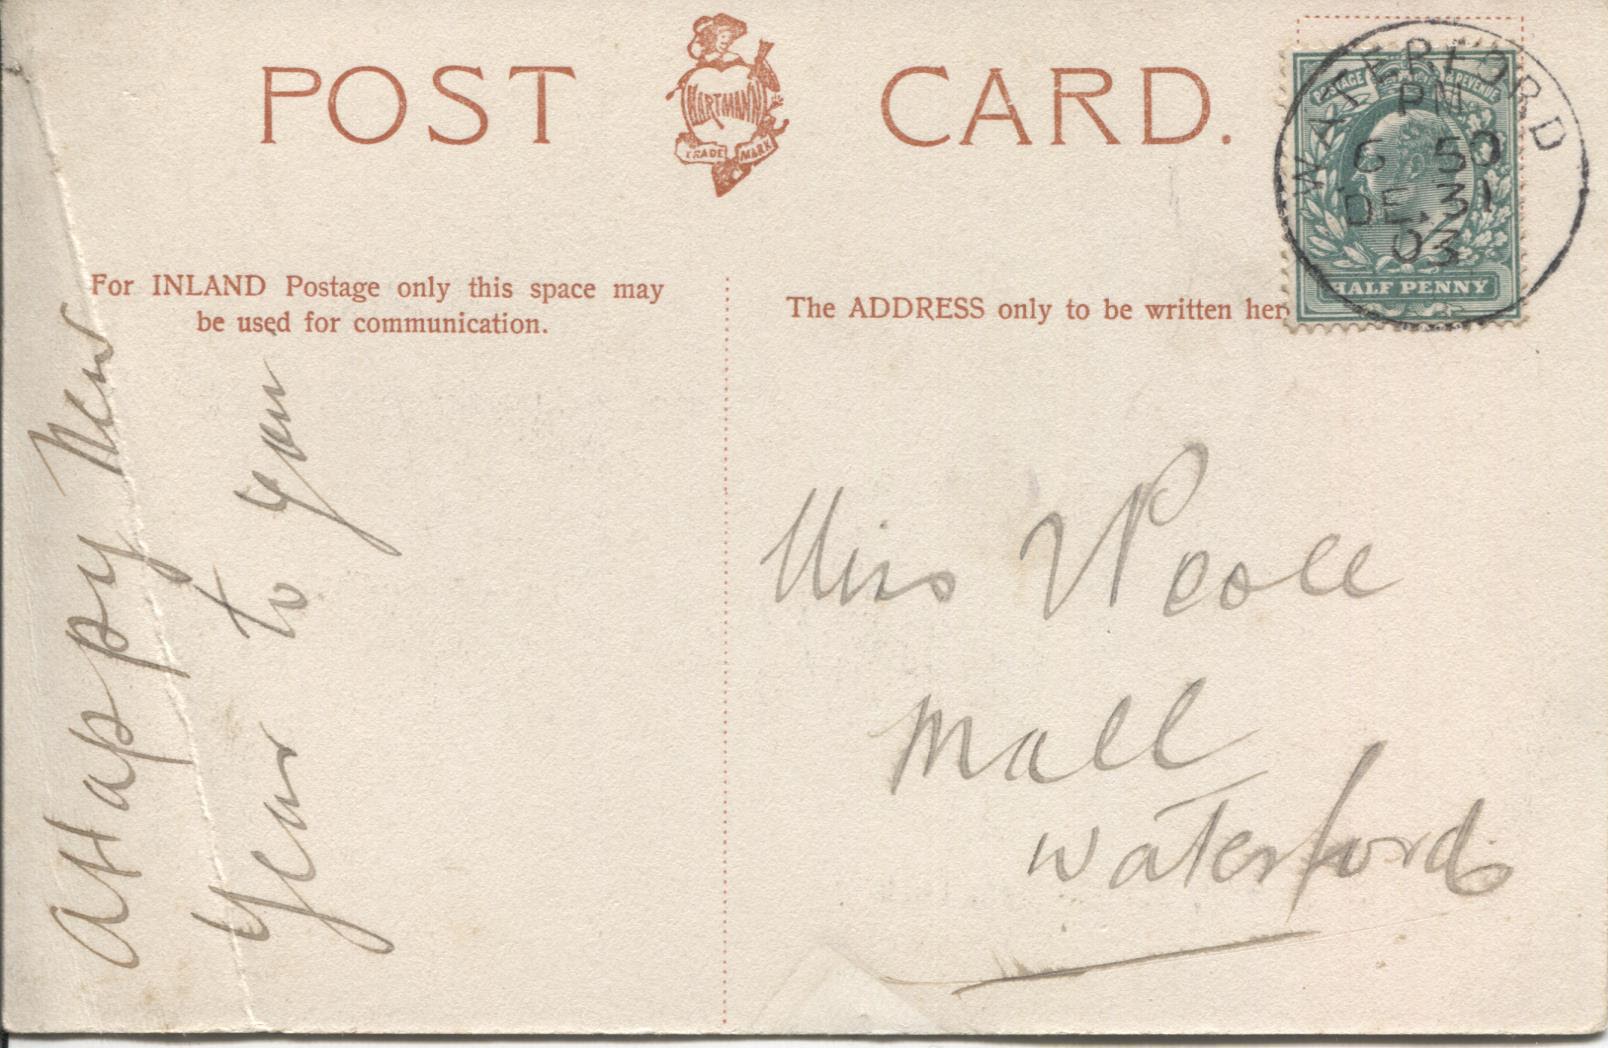 POST CARD.
HARTMANN
TRADE MARK
POSTAGE & REVENUE
HALF PENNY
WATERFORD
PM
6 50
DE. 31
03
For INLAND Postage only this space may
be used for communication.
The ADDRESS only to be written her
A Happy New
Year to you
Miss Poole
Mall
Waterford